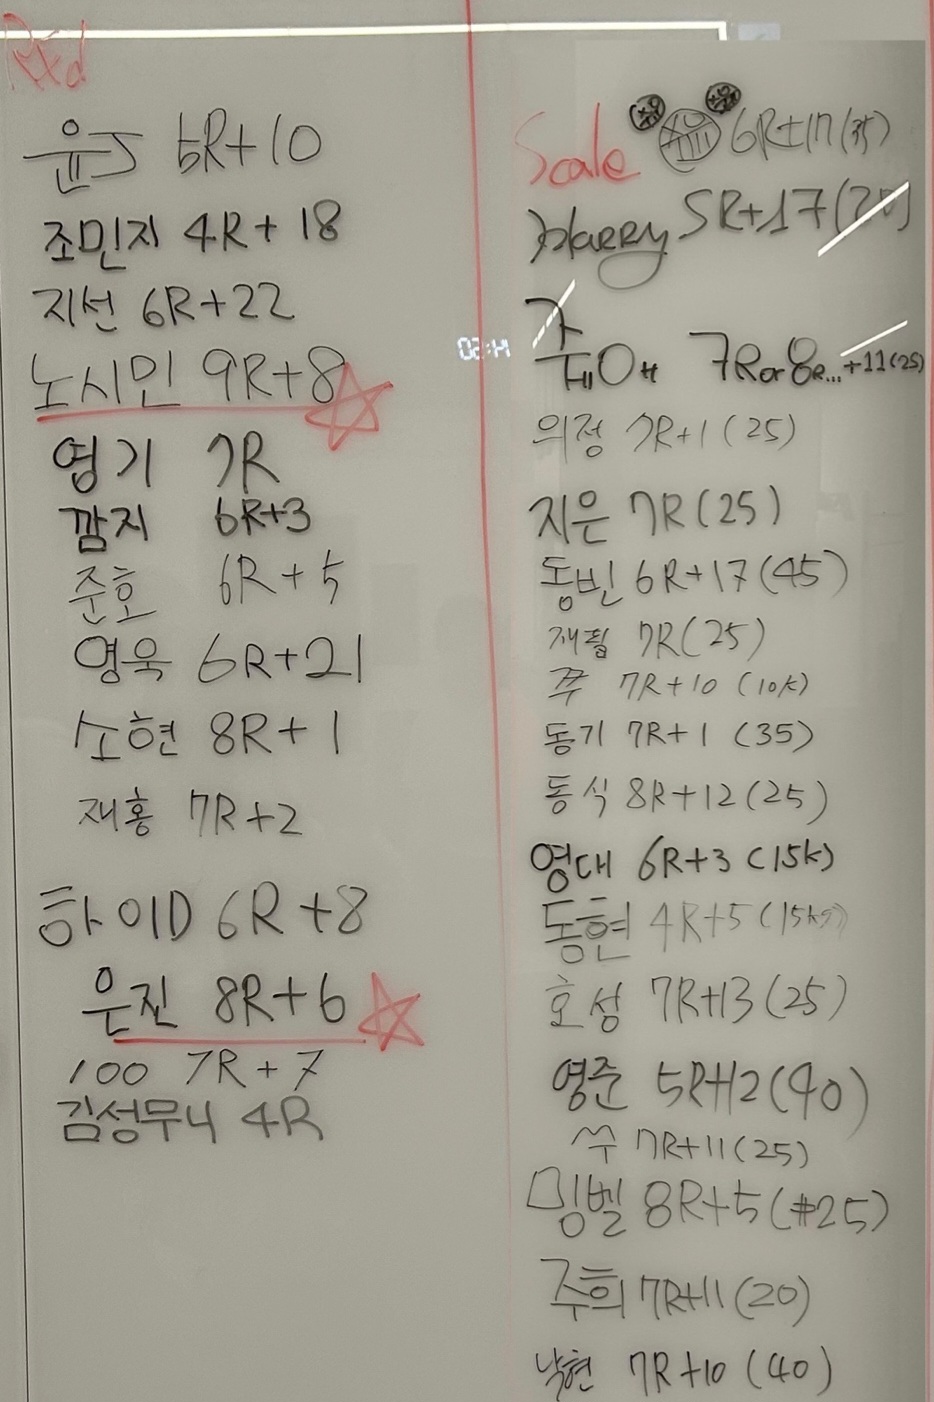 Rxd
윤J 5R+10
조민지 4R+18
지선 6R+22
노시민 9R+8
영기 7R
깜지 6R+3
준호 6R+5
영욱 6R+21
소현 8R+1
재홍 7R+2
하이D 6R+8
은진 8R+6
100 7R+7
김성무니 4R
Scale 6R+17(35)
HARRy 5R+17(20)
7R or 8R...+11(25)
의정 7R+1(25)
지은 7R(25)
동빈 6R+17(45)
재필 7R(25)
쭈 7R+10 (10k)
동기 7R+1 (35)
동식 8R+12(25)
영대 6R+3 (15k)
동현 4R+5(15kg)
호성 7R+13(25)
영준 5R+12(40)
쑤 7R+11(25)
밍벨 8R+5(#25)
주희 7R+11(20)
낙현 7R+10 (40)